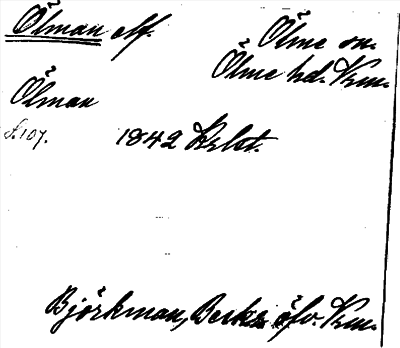 Ölman elf.
Ölme sn.
Ölme hd. Vrm.
Ölman
s. 107. 1842 Krbt.
Björkman, Beskr. öfv. Vrm.